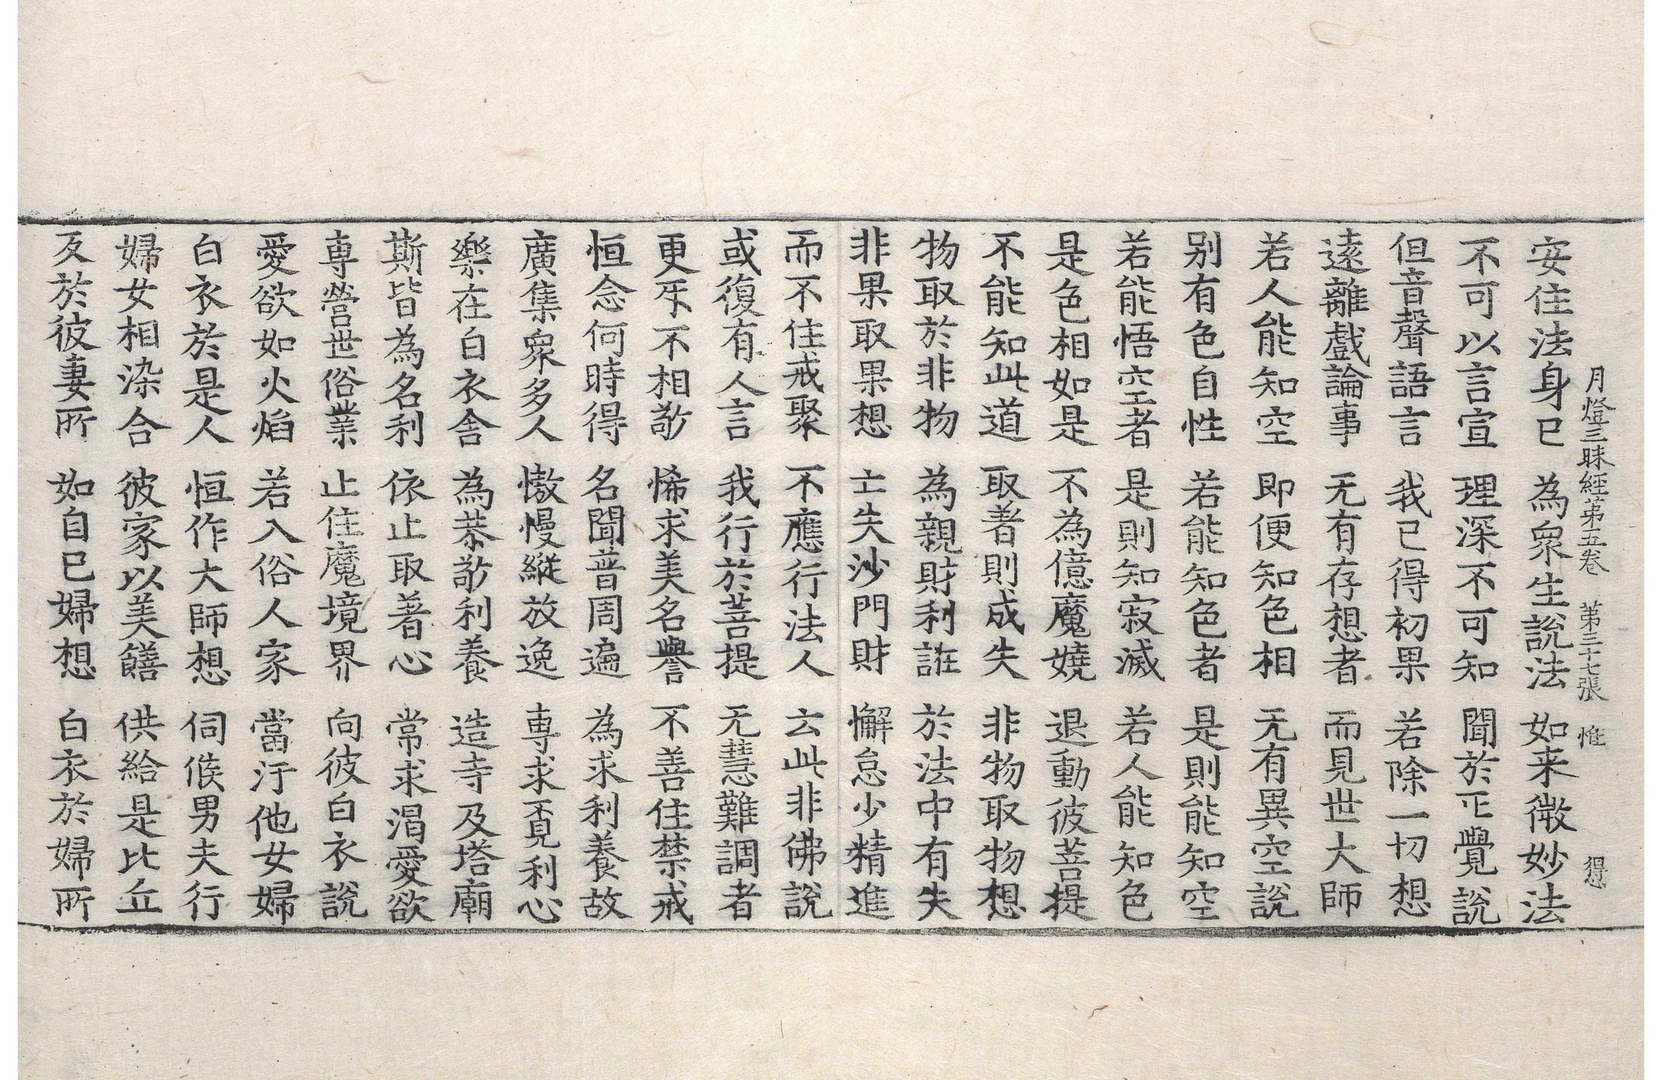 月燈三昧經第五卷 第三十七張 惟
𢙎
安住法身已 為衆生說法 如来微妙法
不可以言宣 理深不可知 聞於正覺說
但音聲語言 我已得初果 若除一切想
遠離戲論事 无有存想者 而見世大師
若人能知空 即便知色相 无有異空說
别有色自性 若能知色者 是則能知空
若能悟空者 是則知寂滅 若人能知色
是色相如是 不為億魔嬈 退動彼菩提
不能知此道 取著則成失 非物取物想
物取於非物 為親財利誑 於法中有失
非果取果想 亡失沙門財 懈怠少精進
而不住戒聚 不應行法人 云此非佛說
或復有人言 我行於菩提 无慧難調者
更㸦不相敬 悕求美名譽 不善住禁戒
恒念何時得 名聞普周遍 為求利養故
廣集衆多人 憿慢縱放逸 専求覔利心
樂在白衣舍 為恭敬利養 造寺及塔廟
斯皆為名利 依止取著心 常求渴愛欲
専營世俗業 止住魔境界 向彼白衣說
愛欲如火焰 若入俗人家 當汙他女婦
白衣於是人 恒作大師想 伺候男夫行
婦女相染合 彼家以美饍 供給是比丘
及於彼妻所 如自已婦想 白衣於婦所